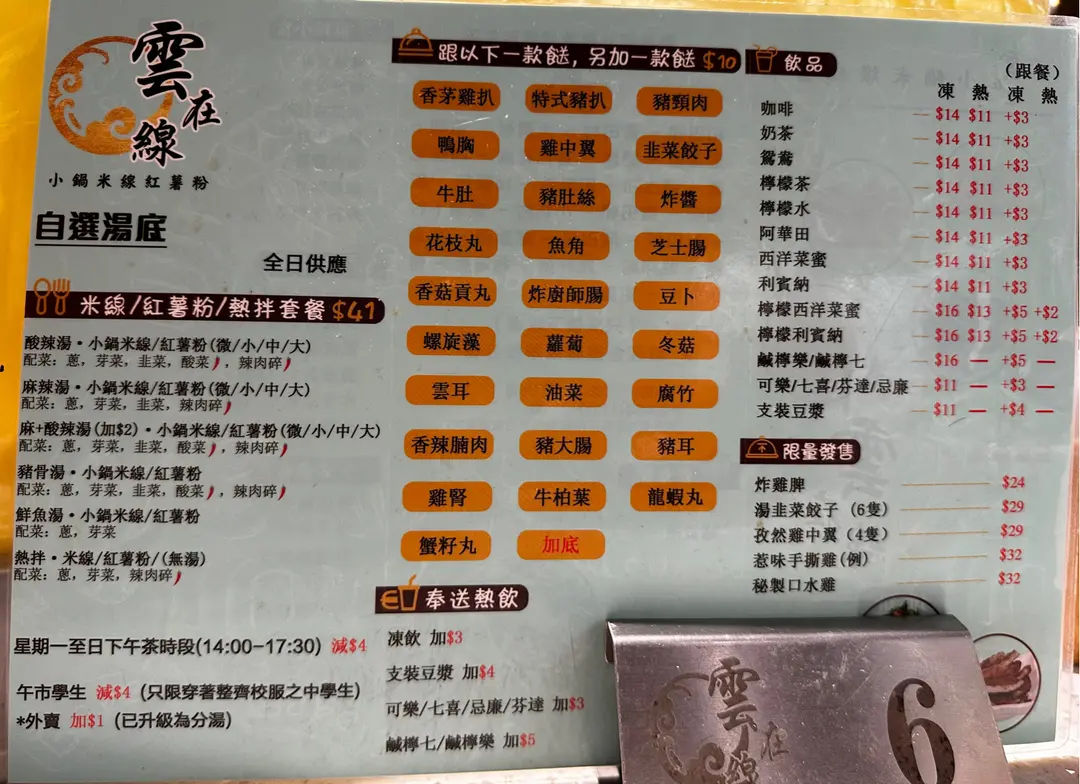 雲在線
小鍋米線紅薯粉
自選湯底
全日供應
米線/紅薯粉/熱拌套餐 $41
酸辣湯・小鍋米線/紅薯粉(微/小/中/大)
配菜：蔥，芽菜，韭菜，酸菜，辣肉碎
麻辣湯・小鍋米線/紅薯粉(微/小/中/大)
配菜：蔥，芽菜，韭菜，辣肉碎
麻+酸辣湯(加$2)・小鍋米線/紅薯粉(微/小/中/大)
配菜：蔥，芽菜，韭菜，酸菜，辣肉碎
豬骨湯・小鍋米線/紅薯粉
配菜：蔥，芽菜，韭菜，酸菜，辣肉碎
鮮魚湯・小鍋米線/紅薯粉
配菜：蔥，芽菜
熱拌・米線/紅薯粉/(無湯)
配菜：蔥，芽菜，辣肉碎
星期一至日下午茶時段(14:00-17:30) 減$4
午市學生 減$4 (只限穿著整齊校服之中學生)
*外賣 加$1 (已升級為分湯)
跟以下一款餸，另加一款餸 $10
香茅雞扒 特式豬扒 豬頸肉
鴨胸 雞中翼 韭菜餃子
牛肚 豬肚絲 炸醬
花枝丸 魚角 芝士腸
香菇貢丸 炸廚師腸 豆卜
螺旋藻 蘿蔔 冬菇
雲耳 油菜 腐竹
香辣腩肉 豬大腸 豬耳
雞腎 牛柏葉 龍蝦丸
蟹籽丸 加底
奉送熱飲
凍飲 加$3
支裝豆漿 加$4
可樂/七喜/忌廉/芬達 加$3
鹹檸七/鹹檸樂 加$5
飲品
(跟餐)
凍 熱 凍 熱
咖啡 — $14 $11 +$3
奶茶 — $14 $11 +$3
鴛鴦 — $14 $11 +$3
檸檬茶 — $14 $11 +$3
檸檬水 — $14 $11 +$3
阿華田 — $14 $11 +$3
西洋菜蜜 — $14 $11 +$3
利賓納 — $14 $11 +$3
檸檬西洋菜蜜 — $16 $13 +$5 +$2
檸檬利賓納 — $16 $13 +$5 +$2
鹹檸樂/鹹檸七 — $16 — +$5 —
可樂/七喜/芬達/忌廉 — $11 — +$3 —
支裝豆漿 — $11 — +$4 —
限量發售
炸雞脾 $24
湯韭菜餃子 (6隻) $29
孜然雞中翼 (4隻) $29
惹味手撕雞(例) $32
秘製口水雞 $32
雲在線
6